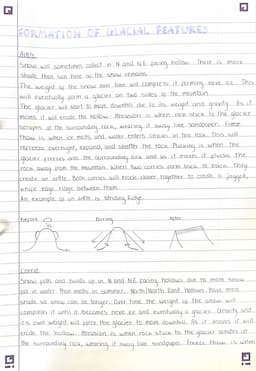 FORMATION OF GLACIAL FEATURES
Arête
Snow will sometimes collect in N and NE facing hollow. There is more
shade than sun here so the snow remains.
The weight of the snow over time will compress it forming neve ice. This
will eventually form a glacier on two sides of the mountain.
The glacier will start to move downhill due to its weight and gravity. As it
moves it will erode the hollow. Abrasion is when rock stuck to the glacier
scrapes at the surrounding rock, wearing it away like sandpaper. Freeze
thaw is when ice melts and water enters cracks in the rock. This will
refreeze overnight, expand, and shatter the rock. Plucking is when the
glacier freezes onto the surrounding rock and as it moves it plucks the
rock away from the mountain. When two corries form back to back they
create an arête. Both corries will erode closer together to create a jagged,
knife edge ridge between them.
An example of an arête is Striding Edge.
Before
During
After
Corrie
Snow falls and builds up in N and NE facing hollows due to more snow
fall in winter than melts in summer. North/North East hollows have more
shade so snow can lie longer. Over time the weight of the snow will
compress it until it becomes neve ice and eventually a glacier. Gravity and
it's own weight will force the glacier to move downhill. As it moves it will
erode the hollow. Abrasion is when rock stuck to the glacier scrapes at
the surrounding rock, wearing it away like sandpaper. Freeze thaw is when